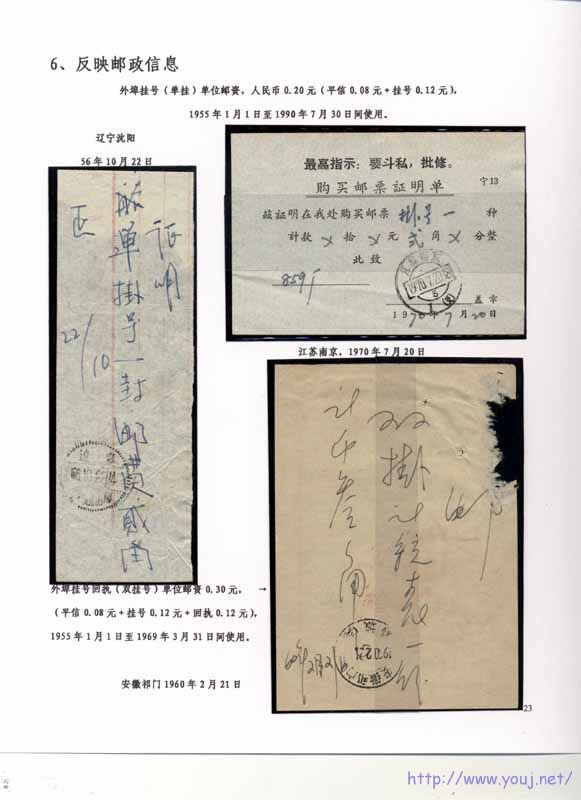 6、反映邮政信息
外埠挂号（单挂）单位邮资，人民币0.20元（平信0.08元+挂号0.12元），
1955年1月1日至1990年7月30日间使用。
辽宁沈阳
56年10月22日
证明
单掛号一封邮费贰角
正
22/10
最高指示：要斗私，批修。
购买邮票证明单
宁13
兹证明在我处购买邮票 掛号一 种
计款 ㄨ 拾 ㄨ 元 弍 角 ㄨ 分整
此致
859厂
盖章
1970年7月20日
江苏南京，1970年7月20日
双掛
外埠挂号回执（双挂号）单位邮资0.30元， →
（平信0.08元+挂号0.12元+回执0.12元），
1955年1月1日至1969年3月31日间使用。
安徽祁门1960年2月21日
23
http://www.youj.net/